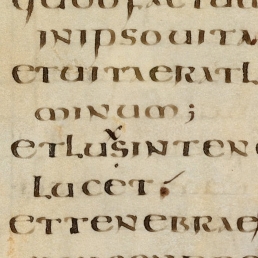 quodfactum
inipsouita
etuitaeratl
minum;
etluxsinten
lucet.
ettenebrae